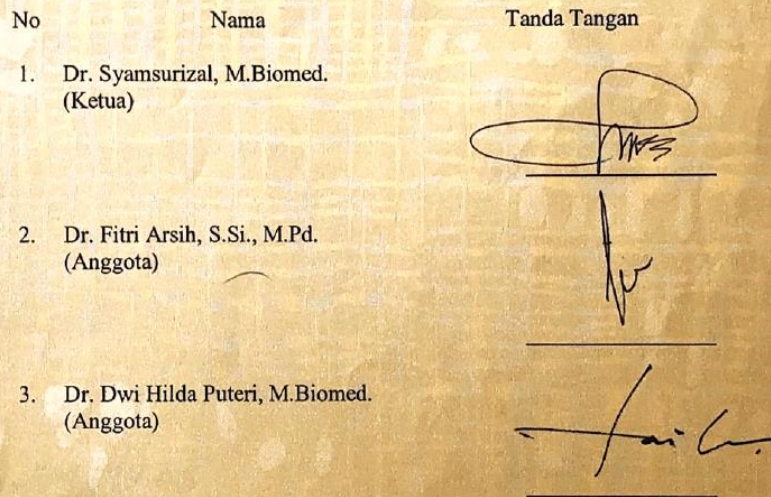 No Nama Tanda Tangan
1. Dr. Syamsurizal, M.Biomed.
(Ketua)
2. Dr. Fitri Arsih, S.Si., M.Pd.
(Anggota)
3. Dr. Dwi Hilda Puteri, M.Biomed.
(Anggota)